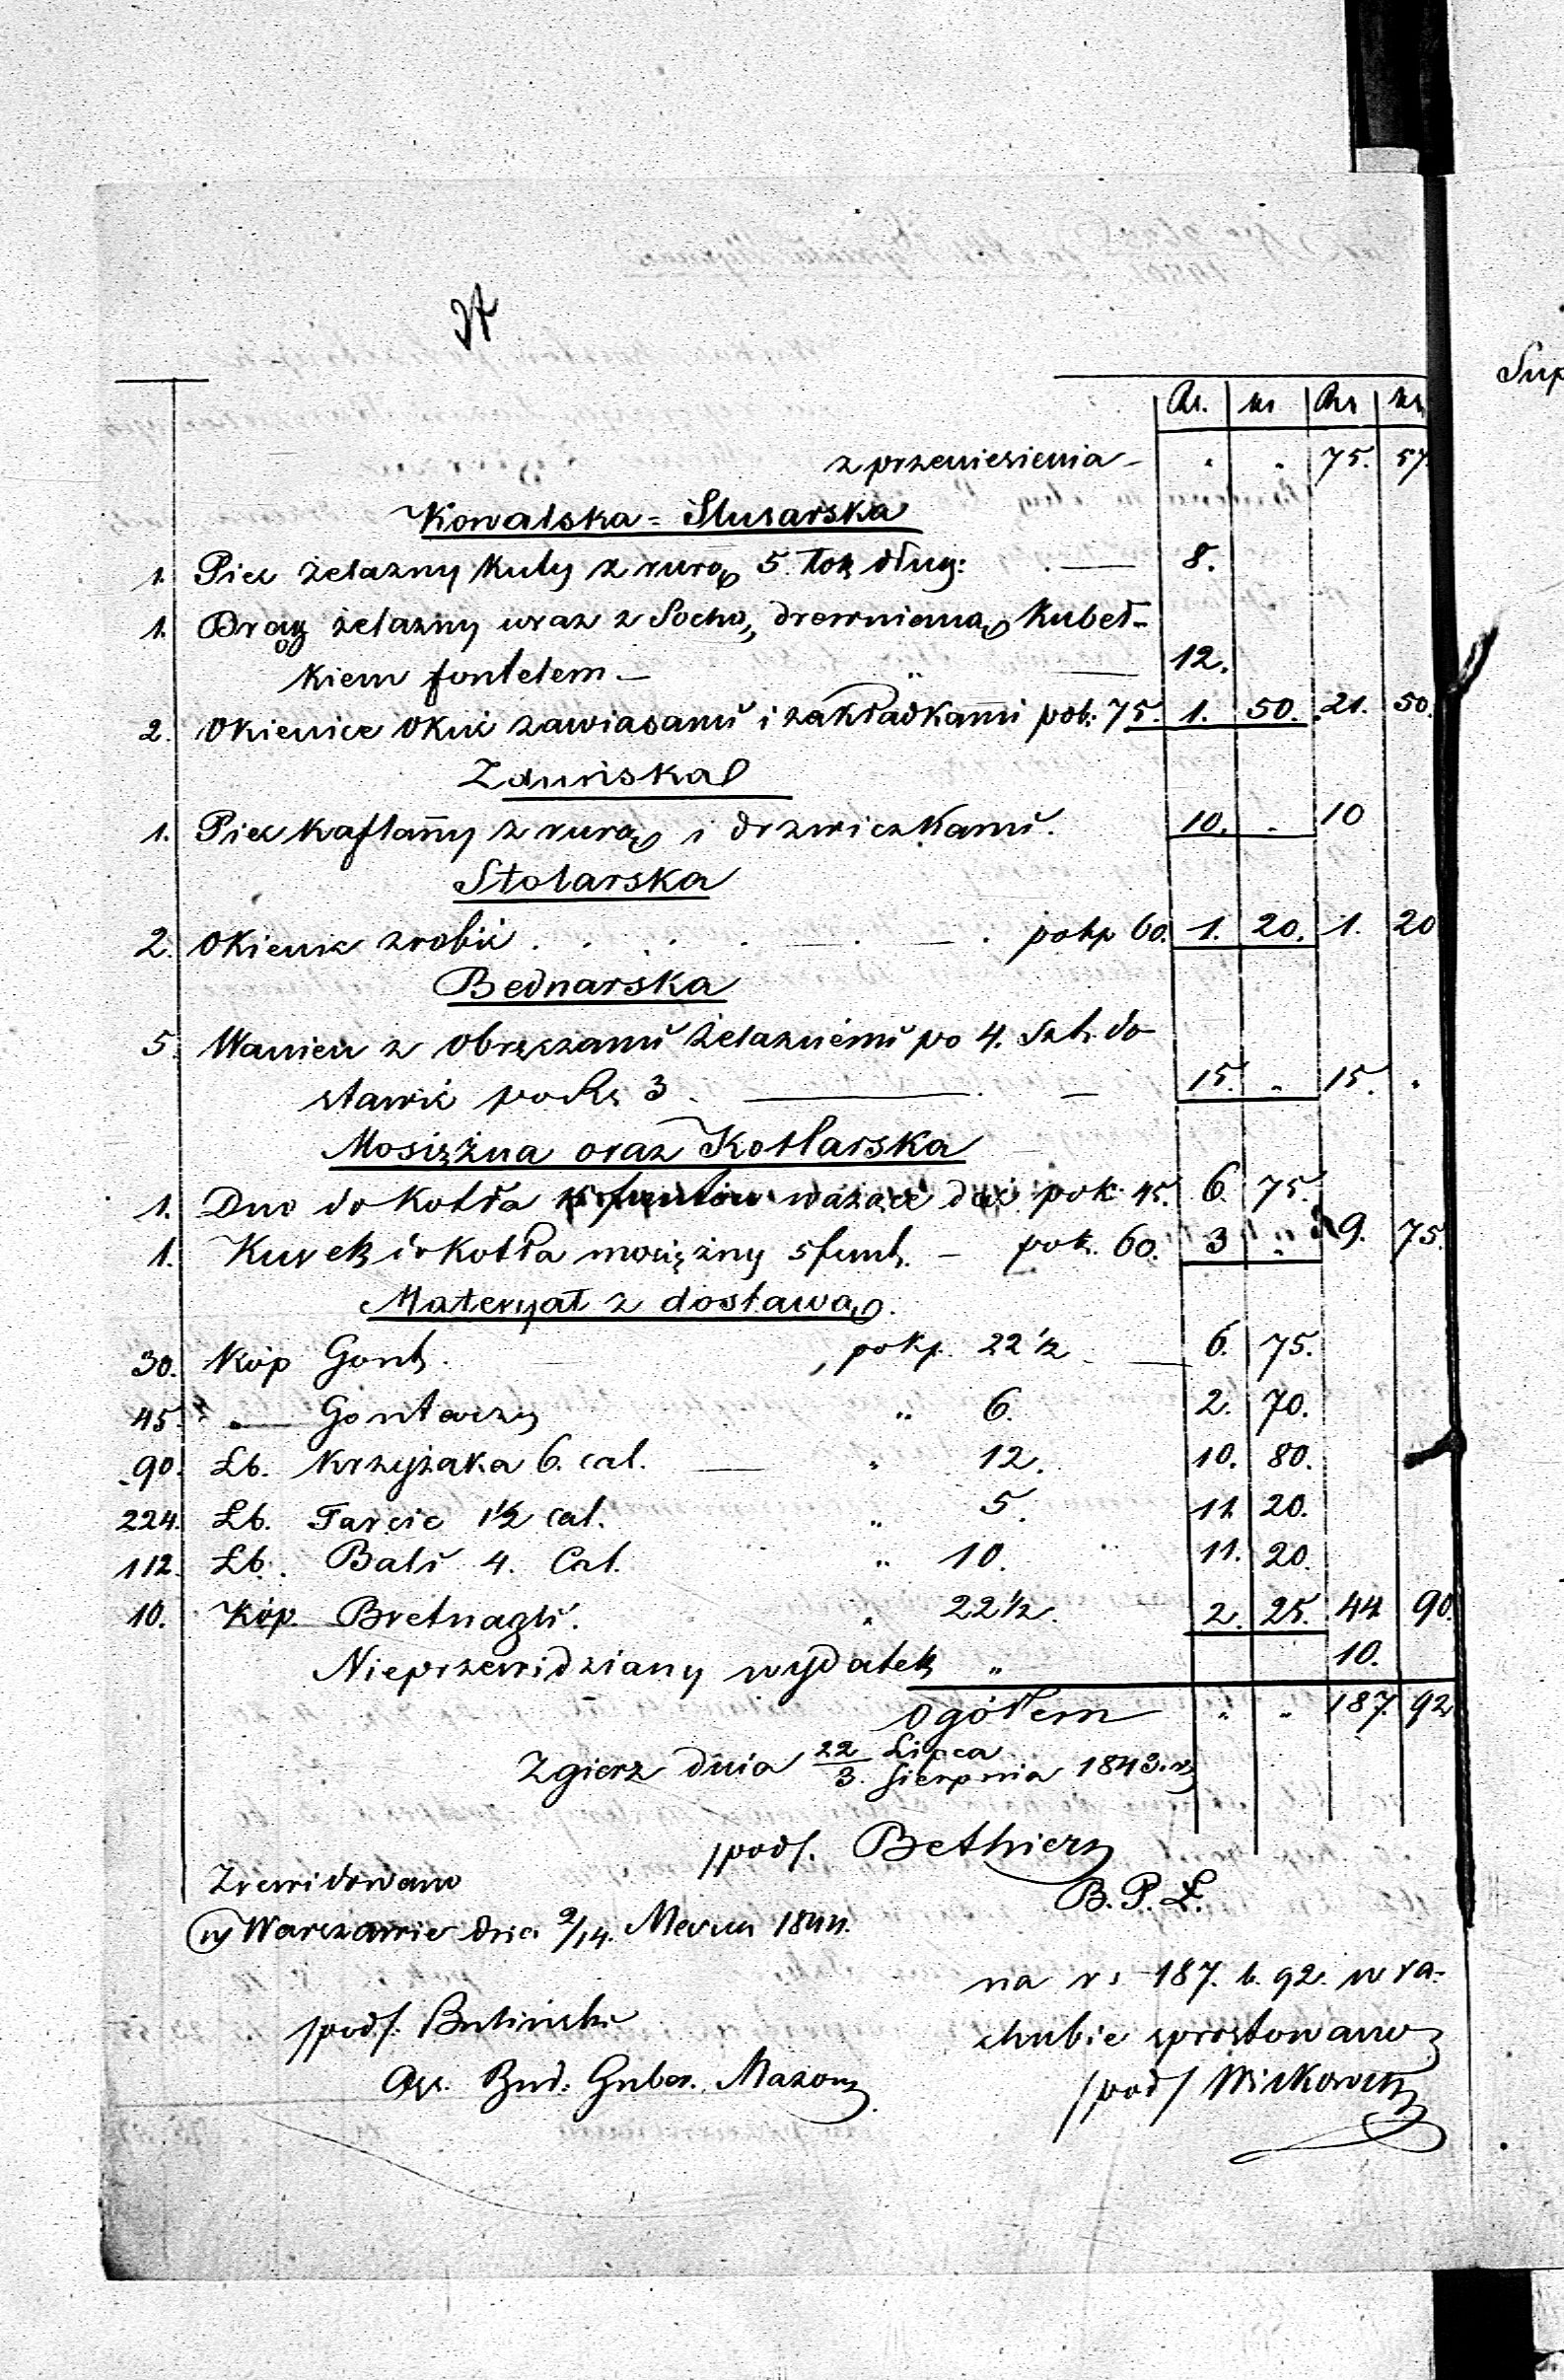 Rs. kr Rs kr
z przeniesienia – " " 75. 57.
Kowalska = Slusarska
1. Piec żelazny kuty z rurą 5. łok dług: 8.
1. Drąg żelazny wraz z Sochą, drewnianą, Kubeł-
kiem fontelem – 12.
2. Okienice okuć zawiasami i zakładkami pok. 75. 1. 50. 21. 50.
Zduńska
1. Piec kaflanny z rurą i drzwiczkami. 10. " 10
Stolarska
2. Okienic zrobić . . . pokp 60. 1. 20. 1. 20
Bednarska
5. Wanien z obręczami żelaznemi po 4. Szt. do-
stawić po Rs 3. 15. " 15. "
Mosiężna oraz Kotlarska
1. Dno do Kotła ważące dać pok 45. 6. 75.
1. Kurek do kotła mosiężny 5 funt. – pok. 60. 3 " 9. 75.
Materyał z dostawą.
30. Kóp Gont. pokp. 22 1/2 6. 75.
45. " Gontaczy " 6. 2. 70.
90. Łb. Krzyżaka 6. cal. " 12. 10. 80.
224. Łb. Tarcic 1 1/2 cal. " 5. 11 20.
112. Łb. Bali 4. Cal. " 10. 11. 20.
10. Kóp. Bretnagli. " 22 1/2. 2. 25. 44 90.
Nieprzewidziany wydatek " 10.
Ogółem " " 187. 92
Zgierz dnia 22/3. Lipca/Sierpnia 1843. r.
/pods. Bethier
B. P. Ł.
Zrewidowano
w Warszawie dnia 2/14. Marca 1844.
na rs 187. k. 92. w ra-
chubie sprostowano
/pods.
Ass. Bud. Guber. Mazow
/pods/